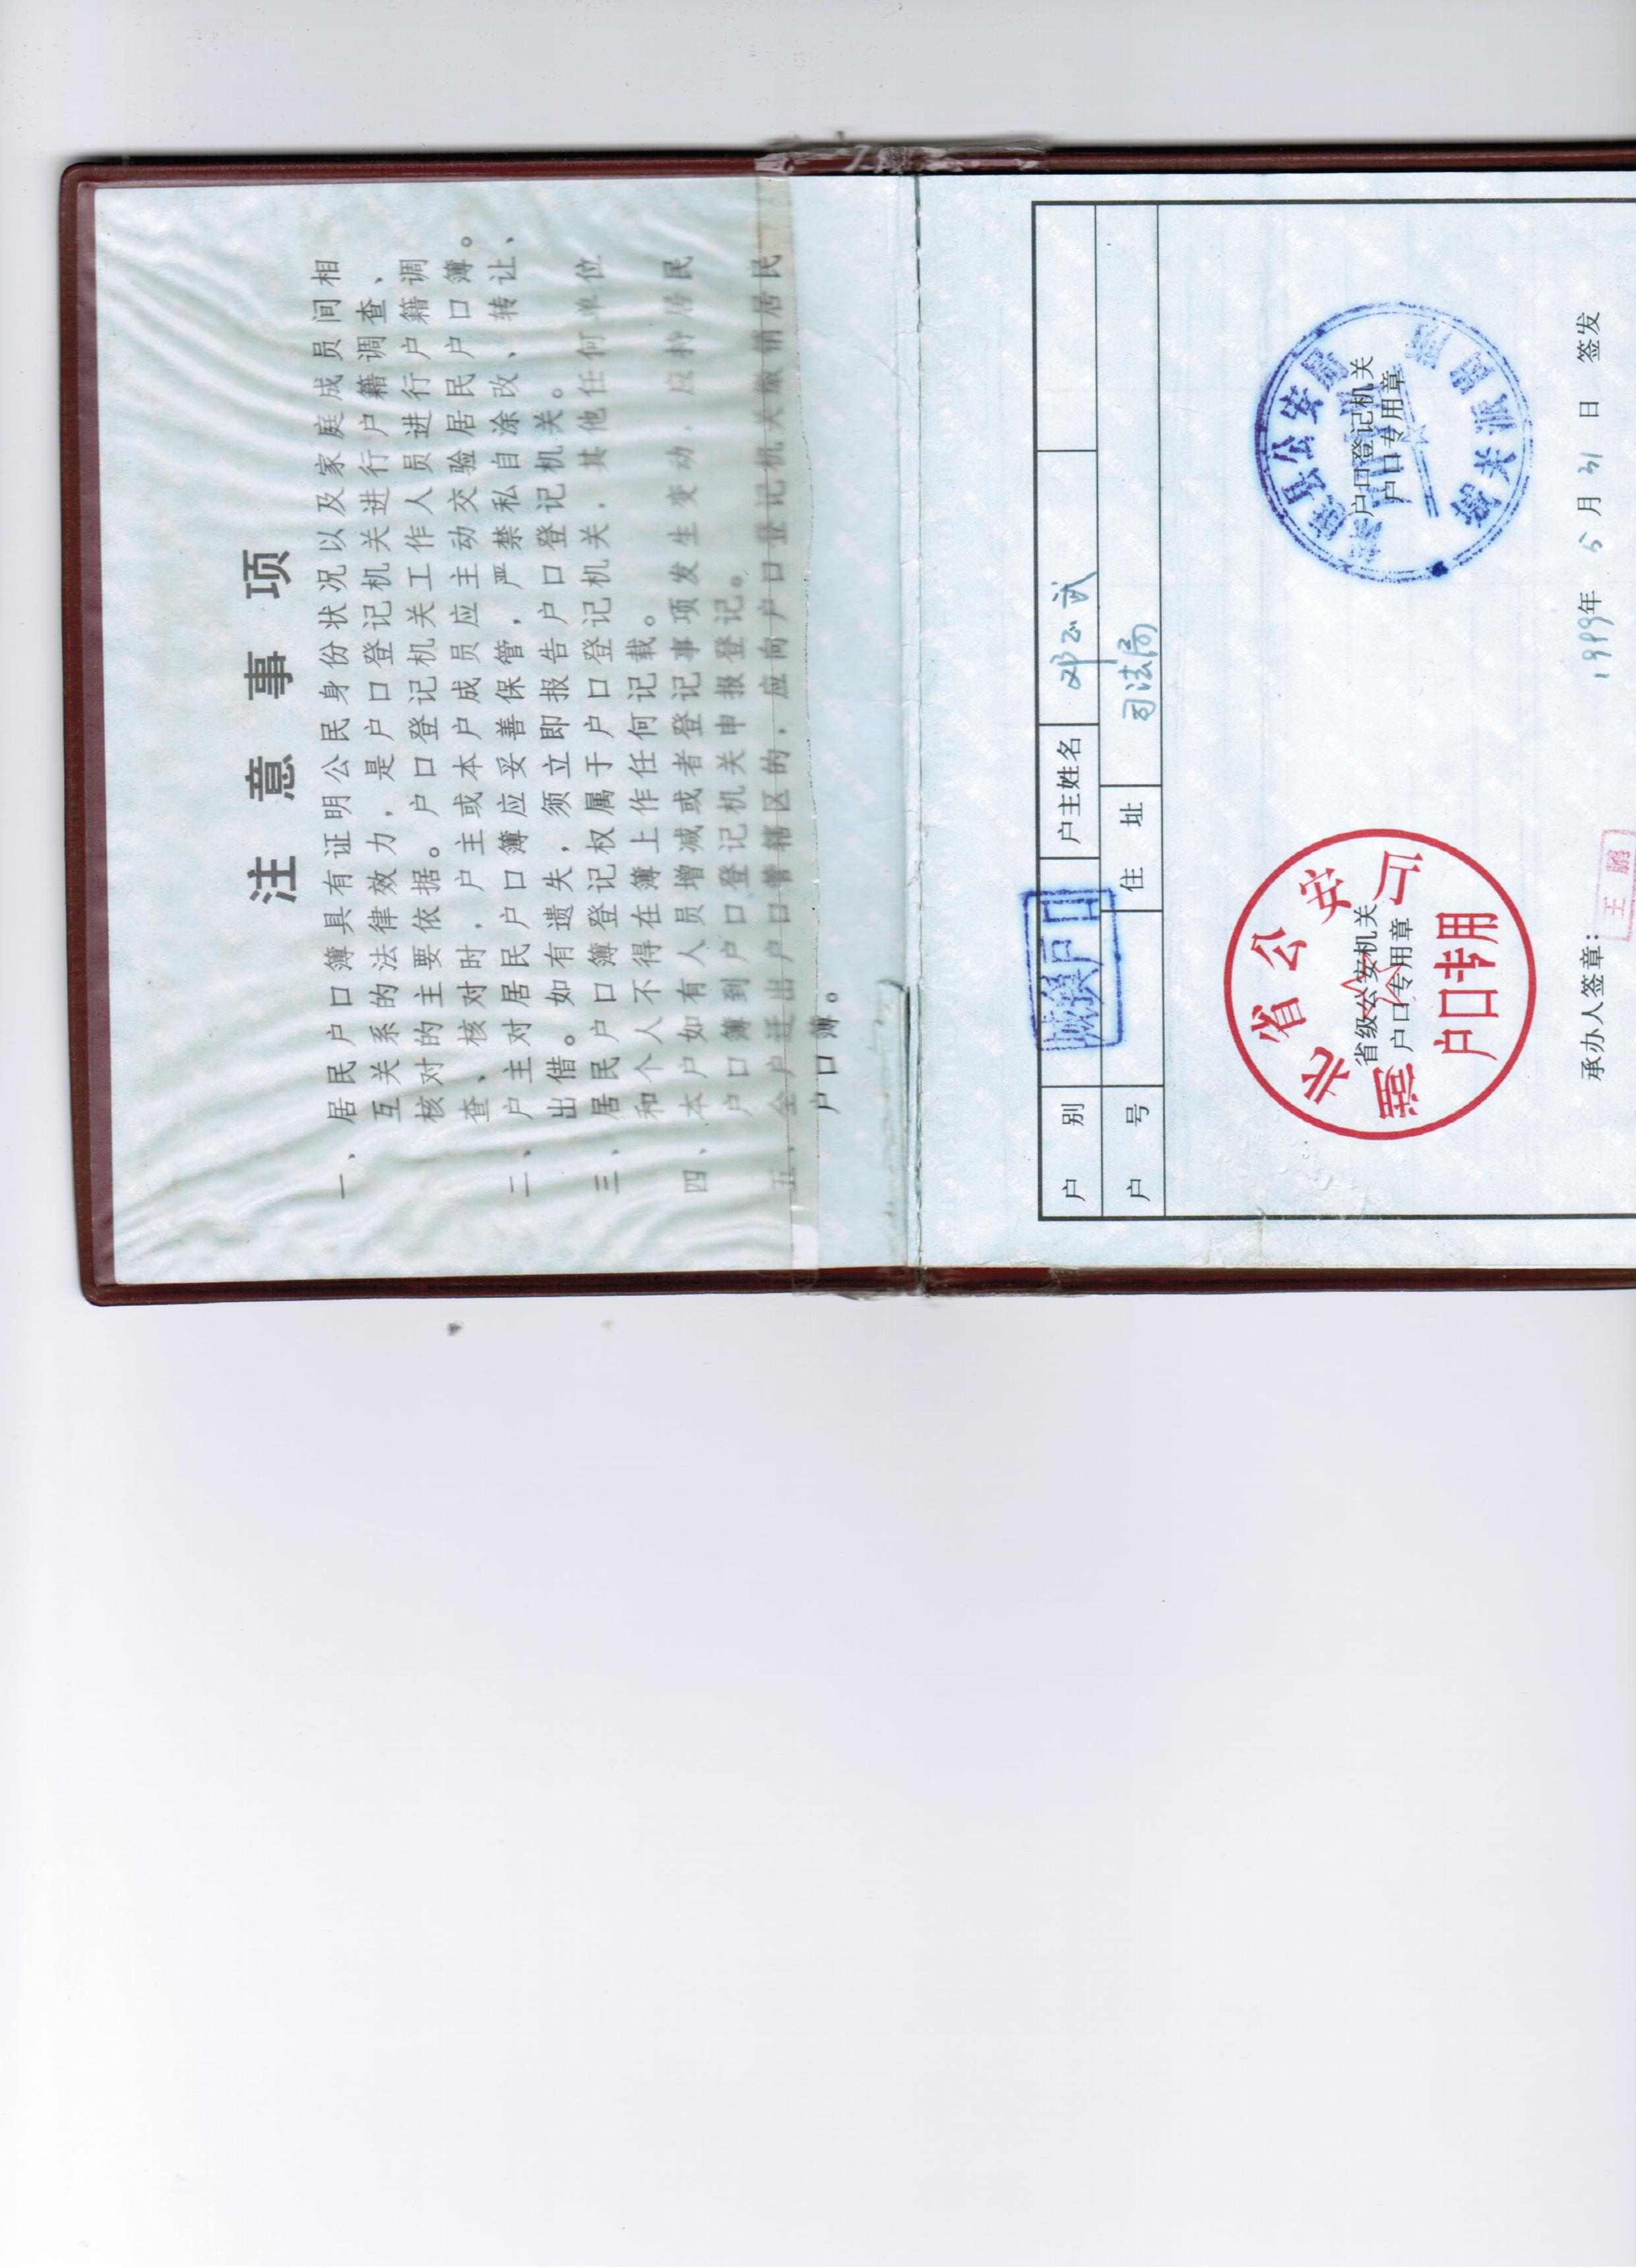 注意事项
一、居民户口簿具有证明公民身份状况以及家庭成员间相
互关系的法律效力，是户口登记机关进行户籍调查、
核对的主要依据。户口登记机关工作人员进行户籍调
查、核对时，户主或本户成员应主动交验居民户口簿。
二、户主对居民户口簿应妥善保管，严禁私自涂改、转让、
出借。如有遗失，须立即报告户口登记机关。
三、居民户口簿登记权属于户口登记机关，其他任何单位
和个人不得在簿上作任何记载。
四、本户如有人员增减或者登记事项发生变动，应持居民
户口簿到户口登记机关申报登记。
五、全户迁出户口管辖区的，应向户口登记机关缴销居民
户口簿。
户别 户主姓名 邓
户号 住址 司法局
省公安厅
省级公安机关
户口专用章
户口专用
县公安局
户口登记机关
户口专用章
城关派出所
承办人签章：
王鹏
1999年5月31日 签发